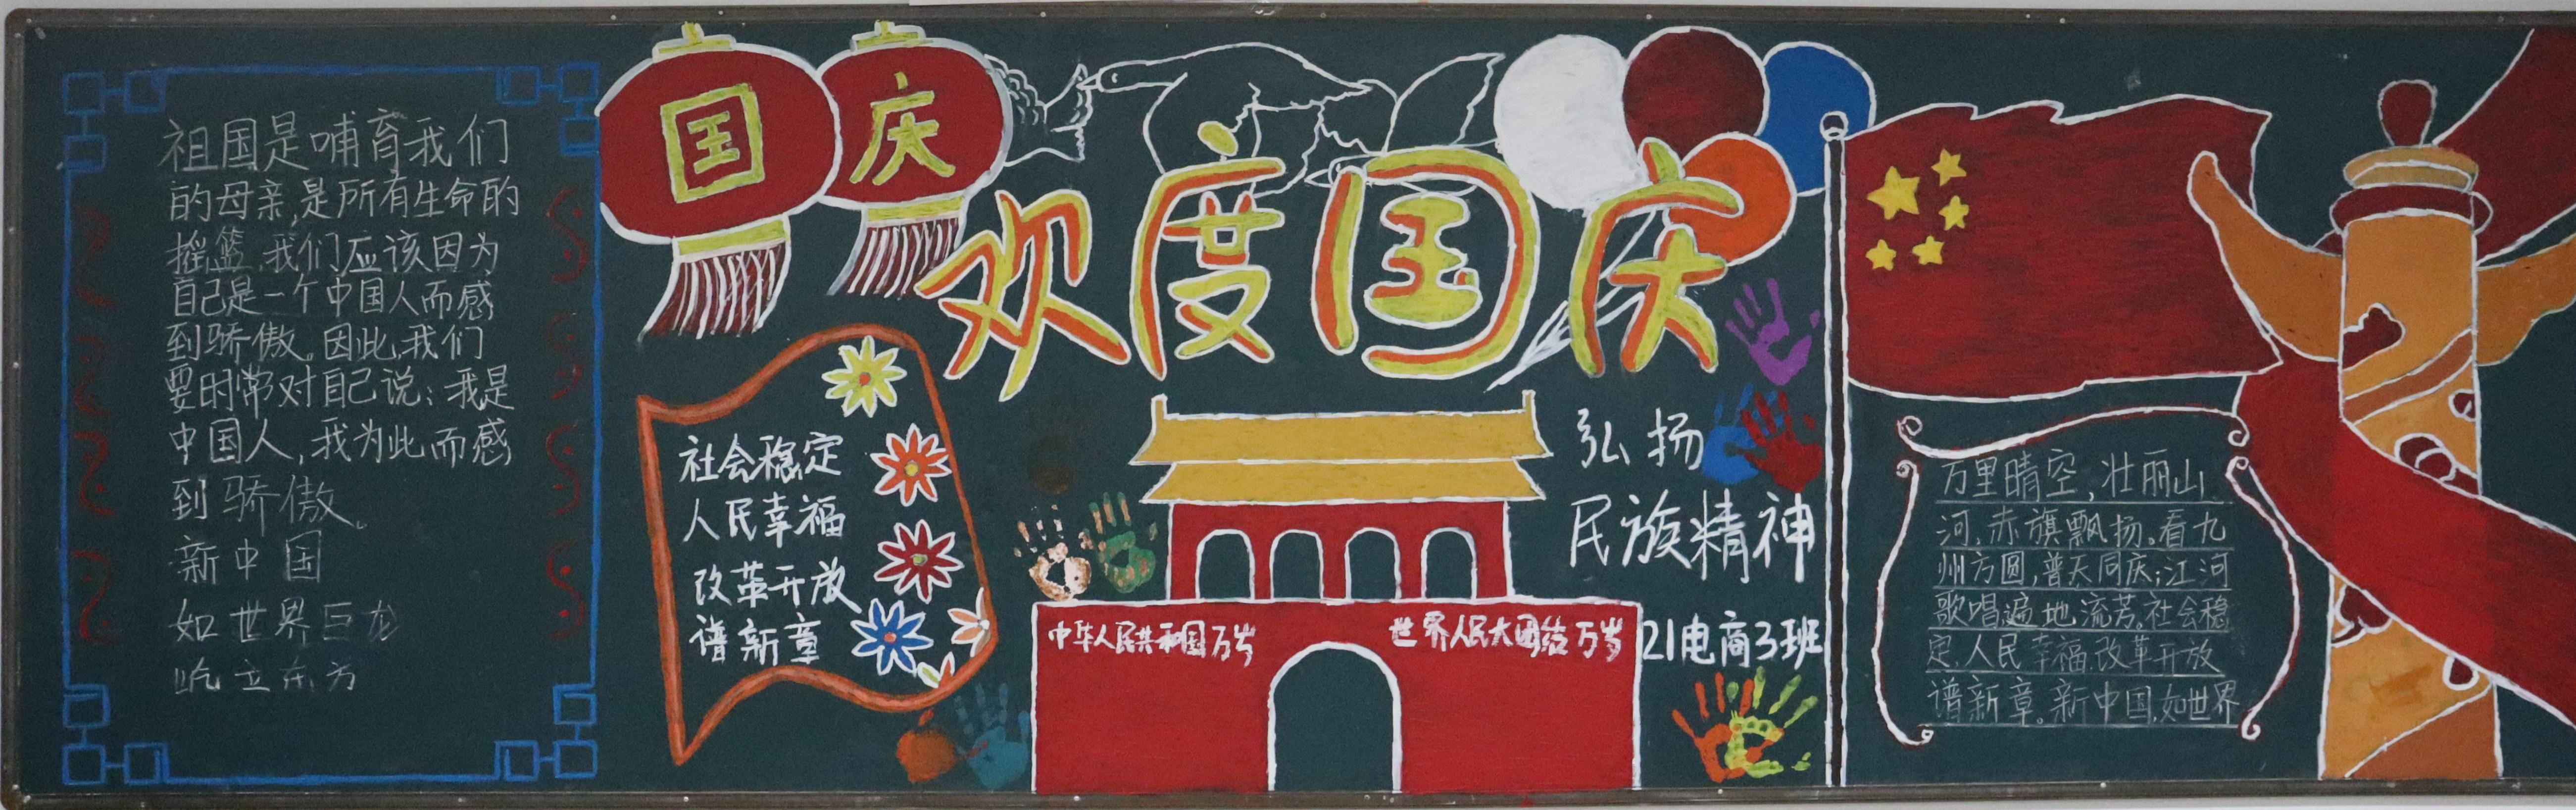 祖国是哺育我们
的母亲,是所有生命的
摇篮,我们应该因为
自己是一个中国人而感
到骄傲。因此,我们
要时常对自己说:我是
中国人,我为此而感
到骄傲。
新中国
如世界巨龙
屹立东方
国庆
欢度国庆
社会稳定
人民幸福
改革开放
谱新章
中华人民共和国万岁
世界人民大团结万岁
弘扬
民族精神
21电商3班
万里晴空,壮丽山
河,赤旗飘扬。看九
州方圆,普天同庆;江河
歌唱遍地流芳。社会稳
定,人民幸福,改革开放
谱新章。新中国,如世界